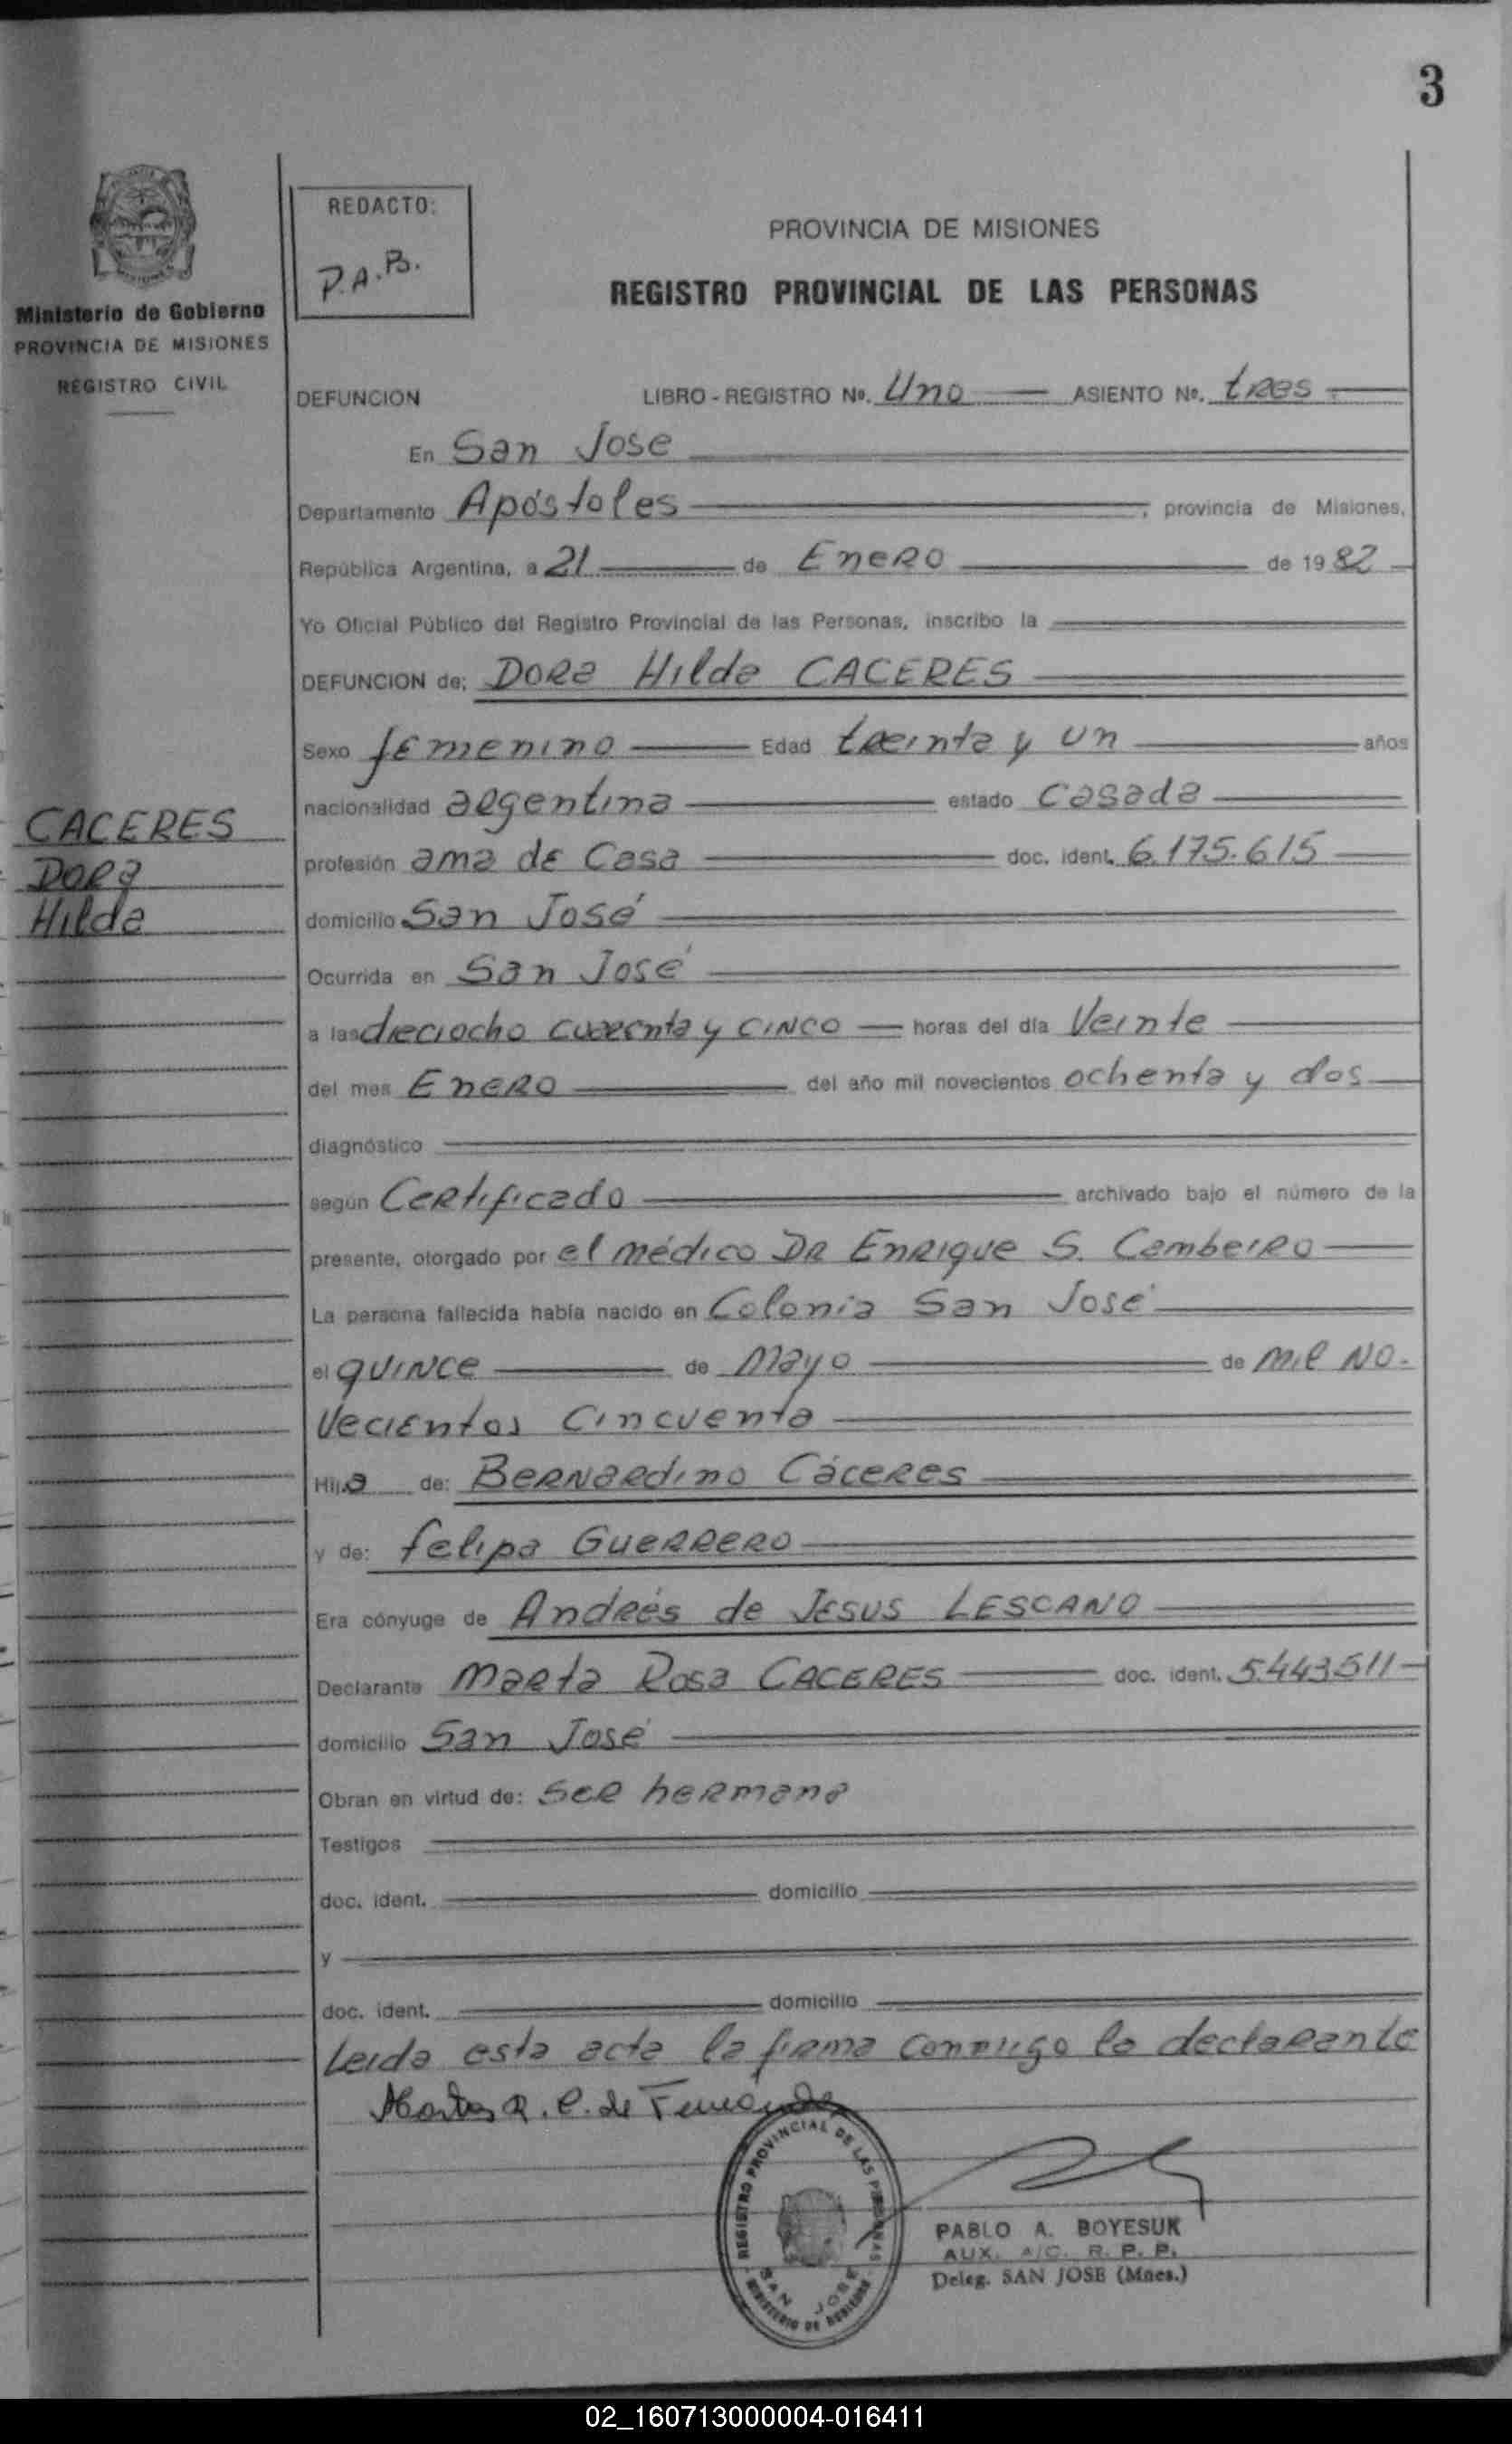 3
Ministerio de Gobierno
PROVINCIA DE MISIONES
REGISTRO CIVIL
REDACTO:
P.A.B.
PROVINCIA DE MISIONES
REGISTRO PROVINCIAL DE LAS PERSONAS
DEFUNCION LIBRO - REGISTRO No. Uno ASIENTO No. tres
En San Jose
Departamento Apóstoles, provincia de Misiones,
República Argentina, a 21 de Enero de 1982
Yo Oficial Público del Registro Provincial de las Personas, inscribo la
DEFUNCION de: Dora Hilda CACERES
Sexo femenino Edad treinta y un años
nacionalidad argentina estado Casada
CACERES
Dora
Hilda
profesión ama de Casa doc. ident. 6.175.615
domicilio San José
Ocurrida en San José
a las dieciocho cuarenta y cinco horas del día Veinte
del mes Enero del año mil novecientos ochenta y dos
diagnóstico
según Certificado archivado bajo el número de la
presente, otorgado por el médico DR Enrique S. Cambeiro
La persona fallecida había nacido en Colonia San José
el quince de Mayo de mil no-
vecientos Cincuenta
Hija de: Bernardino Cáceres
y de: felipa Guerrero
Era cónyuge de Andrés de Jesus LESCANO
Declarante Marta Rosa CACERES doc. ident. 5.443.511
domicilio San José
Obran en virtud de: Ser hermana
Testigos
doc. ident. domicilio
y
doc. ident. domicilio
Leida esta acta la firma conmigo la declarante
Marta R. C. de
REGISTRO PROVINCIAL DE LAS PERSONAS
SAN JOSE
MINISTERIO DE GOBIERNO
PABLO A. BOYESUK
AUX. A/C. R. P. P.
Deleg. SAN JOSE (Mnes.)
02_160713000004-016411